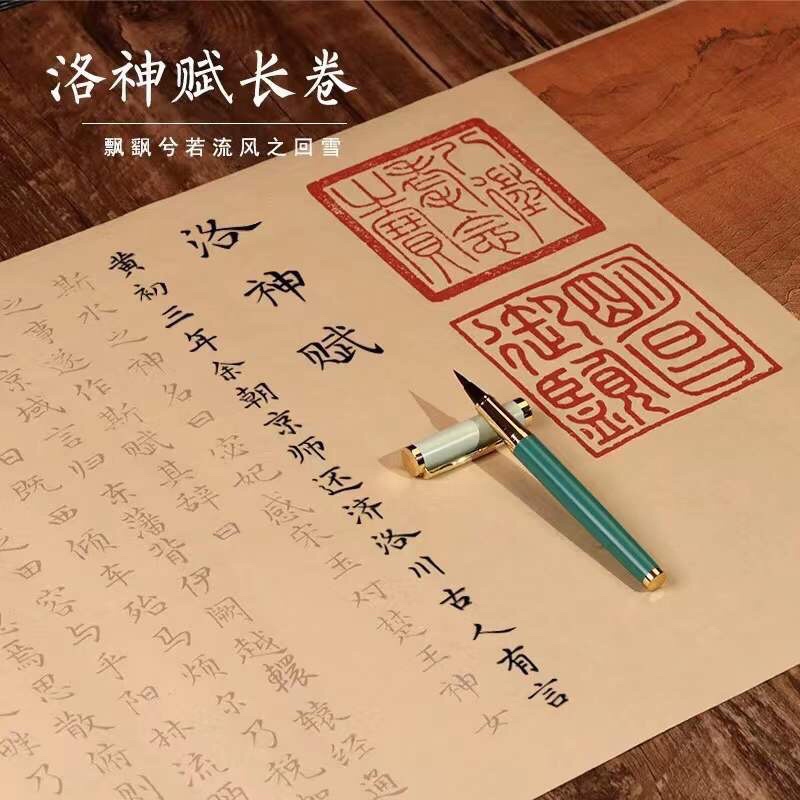 洛神赋长卷
飘飖兮若流风之回雪
八徵耄念之寶
明昌御覽
洛神赋
黄初三年余朝京师还济洛川古人有言
斯水之神名曰宓妃感宋玉对楚王神女
之事遂作斯赋其辞曰
京域言归东藩背伊阙越轘辕经通
日既西倾车殆马烦尔乃税驾
田容与乎阳林流眄
忽焉思散俯则
畔乃